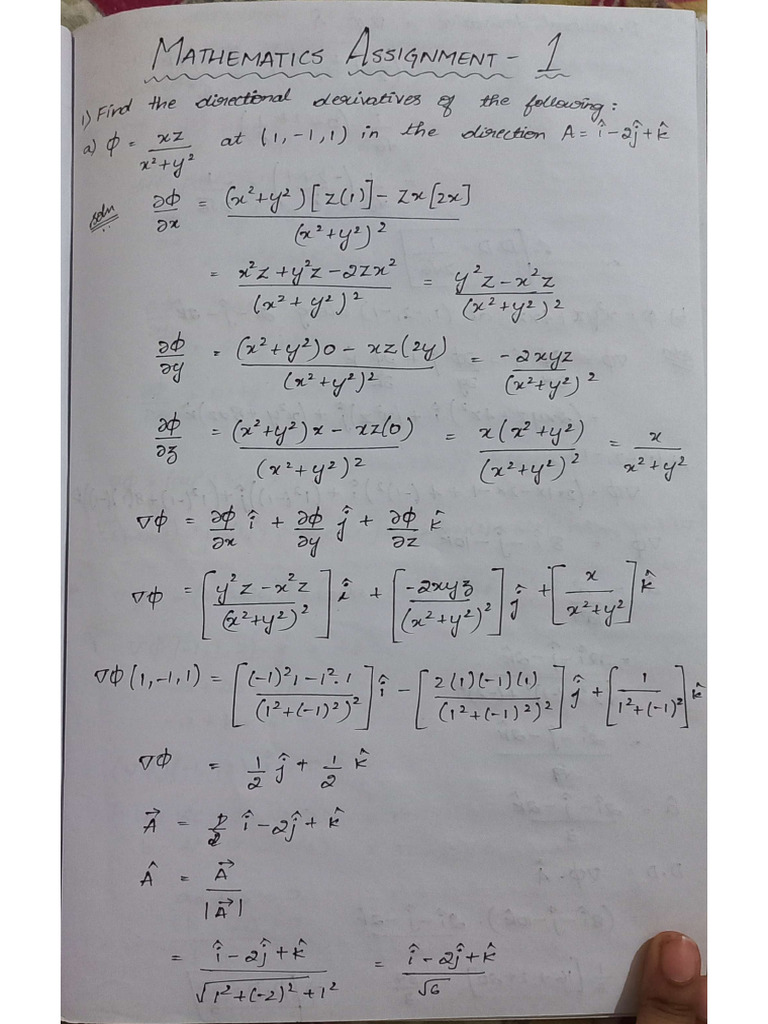 MATHEMATICS ASSIGNMENT - 1
1) Find the directional derivatives of the following:
a) ϕ = xz / x²+y² at (1,-1,1) in the direction A = î-2ĵ+k̂
soln: ∂ϕ/∂x = (x²+y²)[z(1)] - zx[2x] / (x²+y²)²
= x²z+y²z-2zx² / (x²+y²)² = y²z-x²z / (x²+y²)²
∂ϕ/∂y = (x²+y²)0 - xz(2y) / (x²+y²)² = -2xyz / (x²+y²)²
∂ϕ/∂z = (x²+y²)x - xz(0) / (x²+y²)² = x(x²+y²) / (x²+y²)² = x / x²+y²
∇ϕ = ∂ϕ/∂x î + ∂ϕ/∂y ĵ + ∂ϕ/∂z k̂
∇ϕ = [y²z-x²z / (x²+y²)²] î + [-2xyz / (x²+y²)²] ĵ + [x / x²+y²] k̂
∇ϕ(1,-1,1) = [(-1)²1-1²·1 / (1²+(-1)²)²] î - [2(1)(-1)(1) / (1²+(-1)²)²] ĵ + [1 / 1²+(-1)²] k̂
∇ϕ = 1/2 ĵ + 1/2 k̂
A⃗ = î-2ĵ+k̂
Â = A⃗ / |A⃗|
= î-2ĵ+k̂ / √1²+(-2)²+1² = î-2ĵ+k̂ / √6